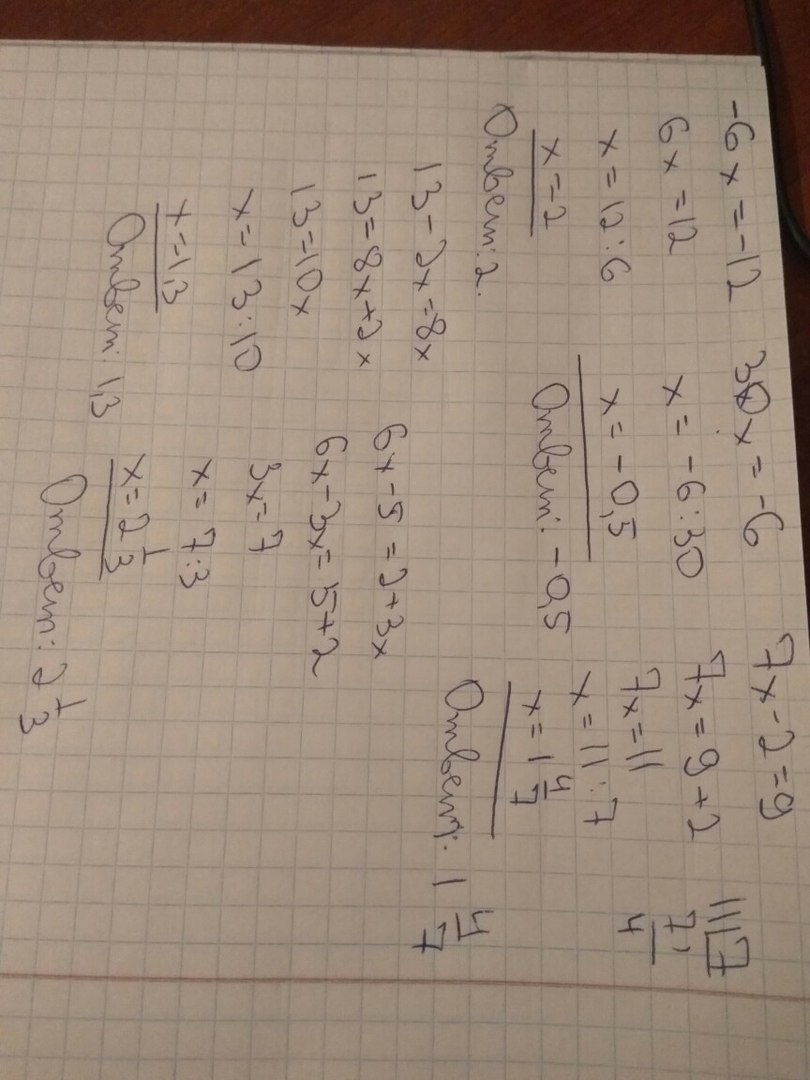 -6x = -12
6x = 12
x = 12 : 6
x = 2
Ответ: 2.
30x = -6
x = -6 : 30
x = -0,5
Ответ: -0,5
7x - 2 = 9
7x = 9 + 2
7x = 11
x = 11 : 7
x = 1 4/7
Ответ: 1 4/7
11 | 7
7 1
4
13 - 2x = 8x
13 = 8x + 2x
13 = 10x
x = 13 : 10
x = 1,3
Ответ: 1,3
6x - 5 = 2 + 3x
6x - 3x = 5 + 2
3x = 7
x = 7 : 3
x = 2 1/3
Ответ: 2 1/3